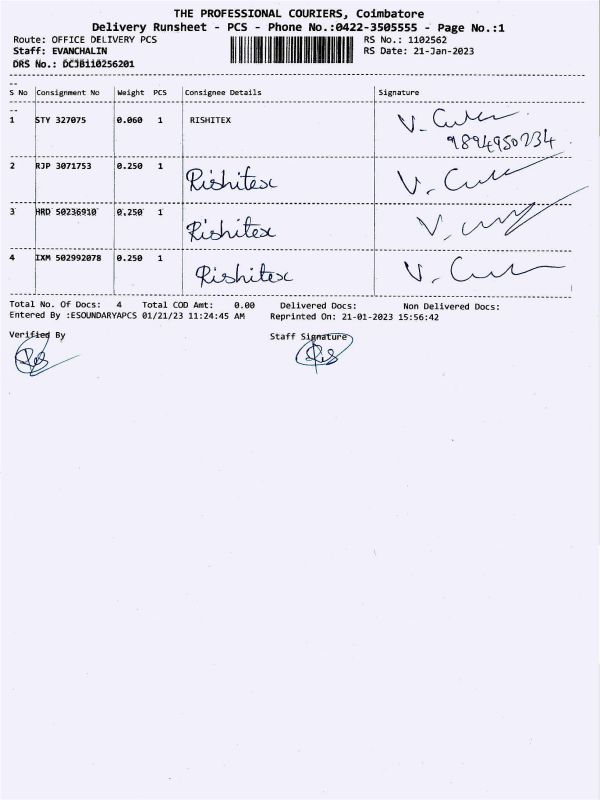 THE PROFESSIONAL COURIERS, Coimbatore
Delivery Runsheet - PCS - Phone No.:0422-3505555 - Page No.:1
Route: OFFICE DELIVERY PCS RS No.: 1102562
Staff: EVANCHALIN RS Date: 21-Jan-2023
DRS No.: DCJB110256201
S No Consignment No Weight PCS Consignee Details Signature
1 STY 327075 0.060 1 RISHITEX V.
9894950234
2 RJP 3071753 0.250 1 Rishitex V.
3 HRD 50236910 0.250 1 Rishitex V.
4 IXM 502992078 0.250 1 Rishitex V.
Total No. Of Docs: 4 Total COD Amt: 0.00 Delivered Docs: Non Delivered Docs:
Entered By :ESOUNDARYAPCS 01/21/23 11:24:45 AM Reprinted On: 21-01-2023 15:56:42
Verified By Staff Signature